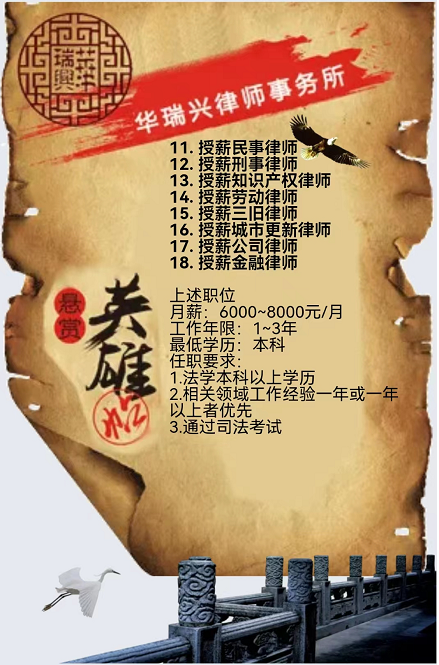 華瑞
興
华瑞兴律师事务所
11. 授薪民事律师
12. 授薪刑事律师
13. 授薪知识产权律师
14. 授薪劳动律师
15. 授薪三旧律师
16. 授薪城市更新律师
17. 授薪公司律师
18. 授薪金融律师
悬赏
英雄
帖
上述职位
月薪：6000~8000元/月
工作年限：1~3年
最低学历：本科
任职要求：
1.法学本科以上学历
2.相关领域工作经验一年或一年
以上者优先
3.通过司法考试